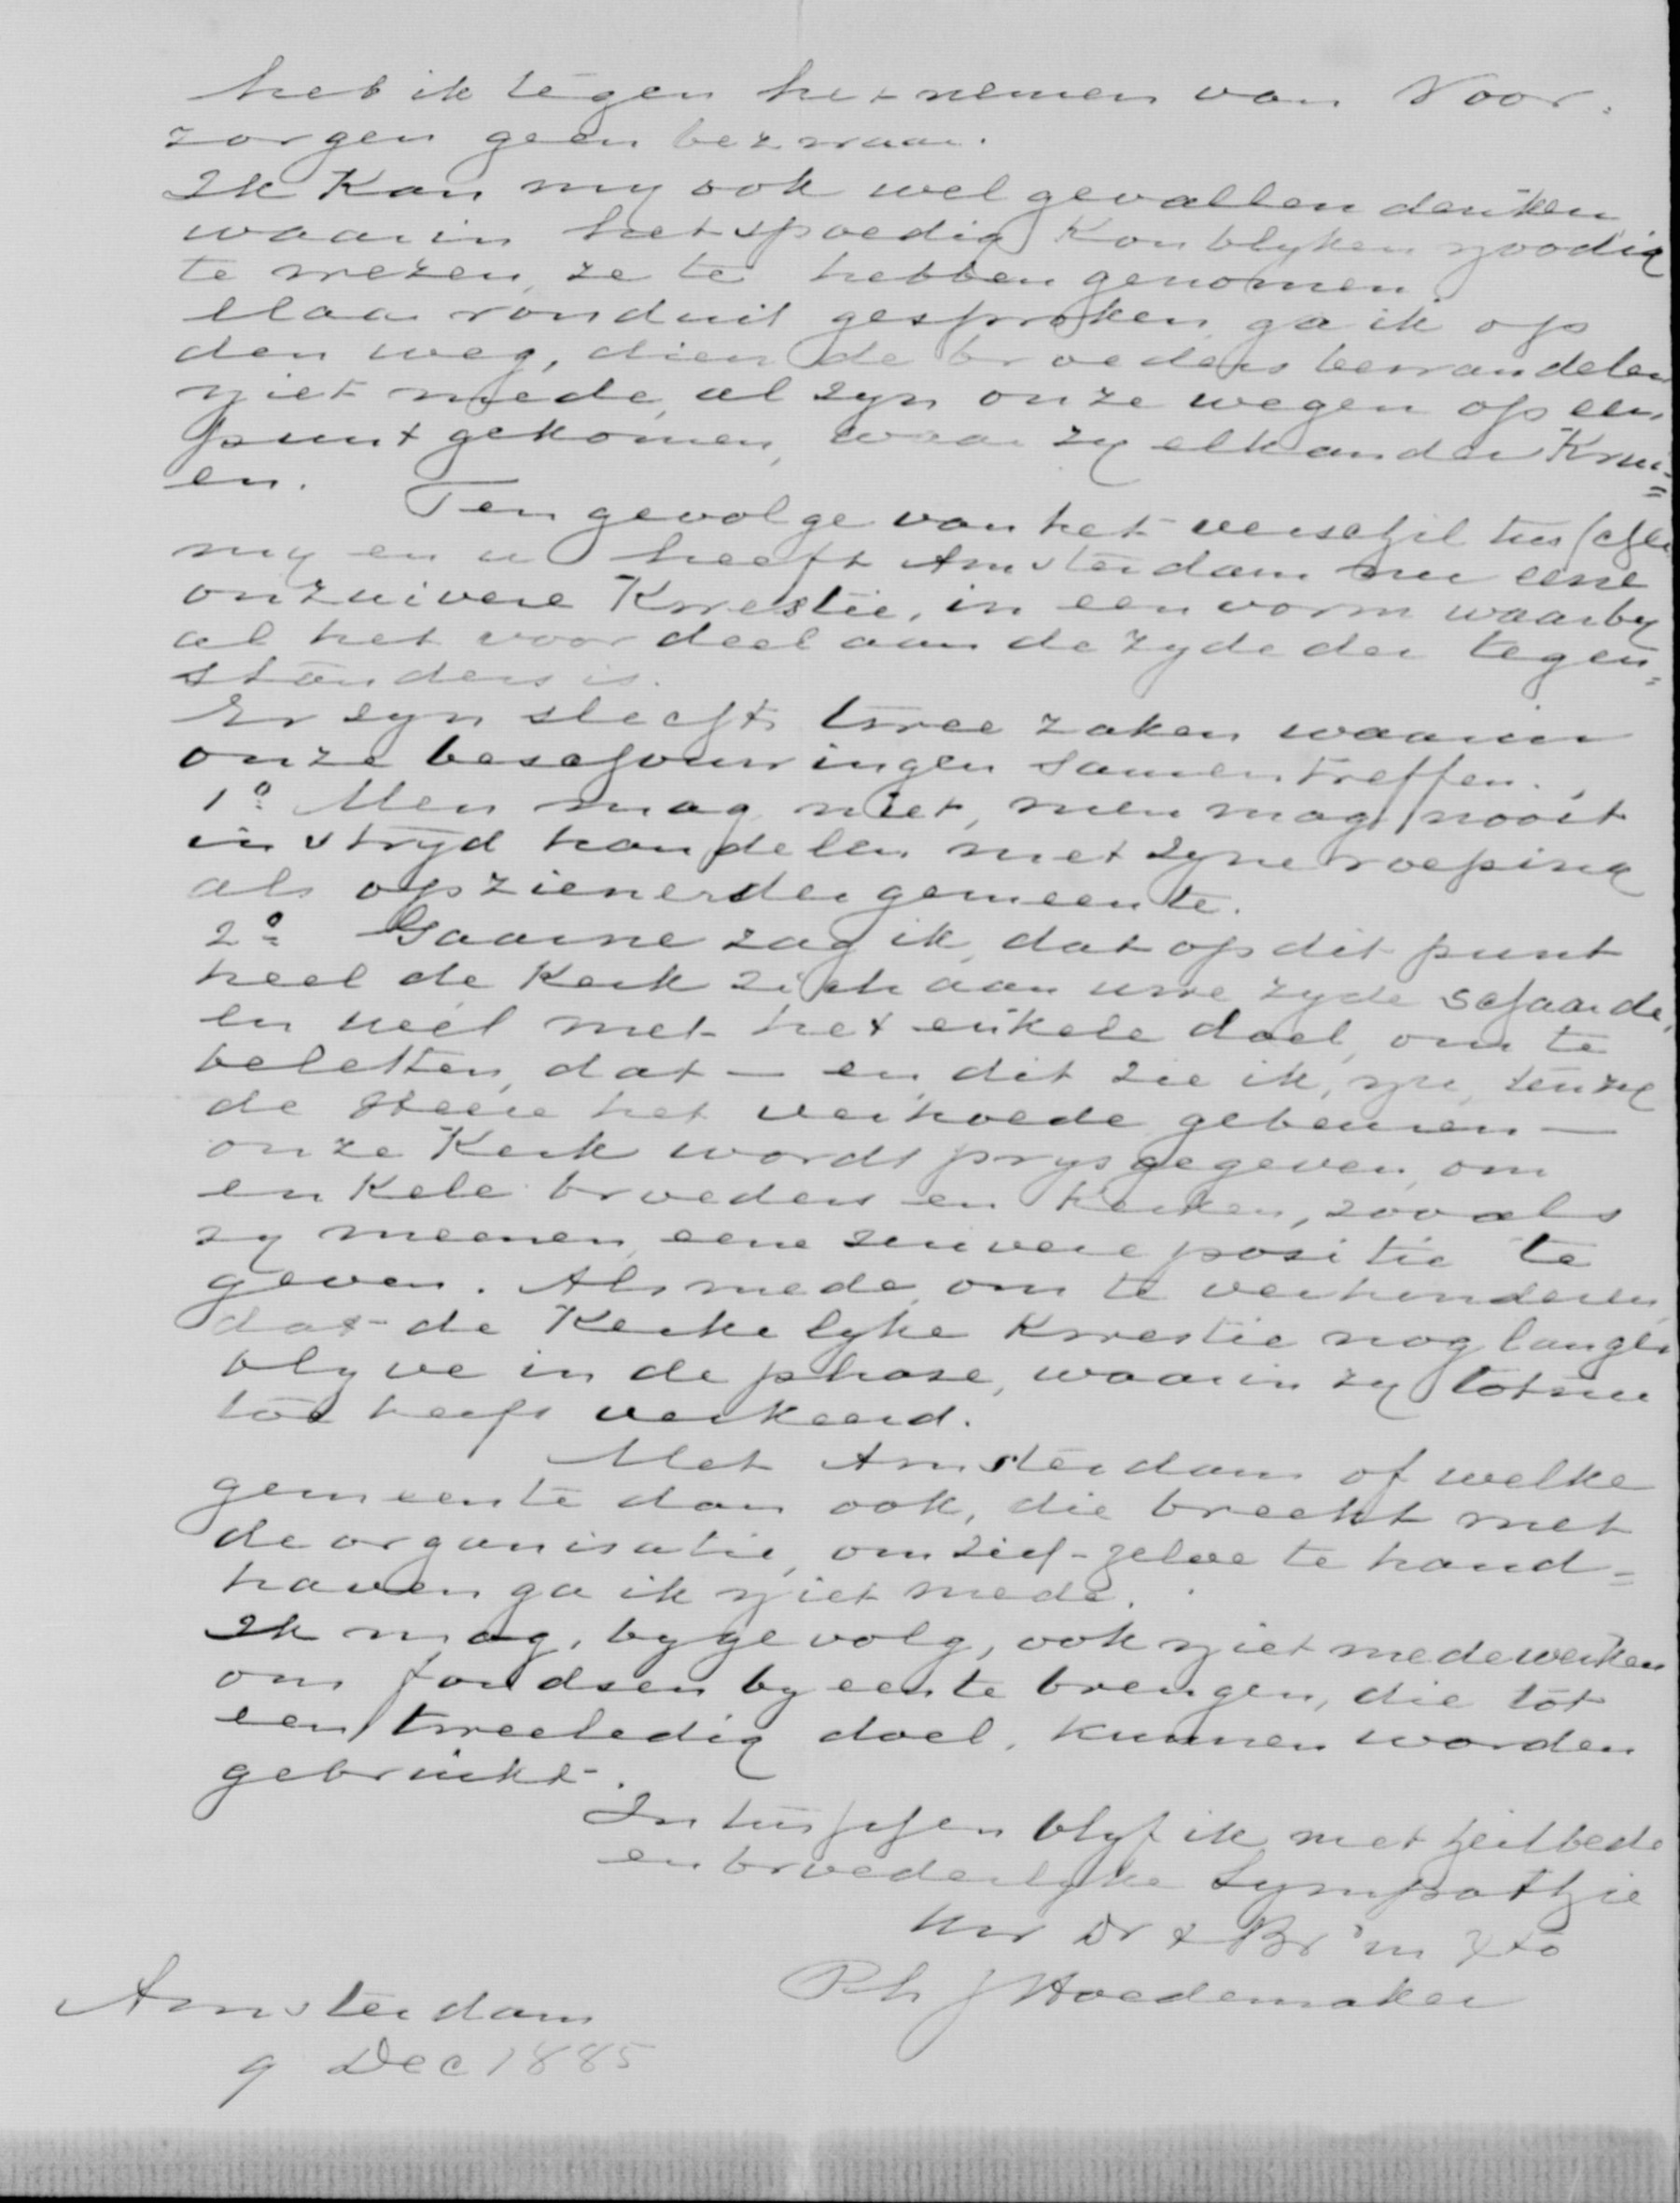 heb ik tegen het nemen van Voor-
zorgen geen bezwaar.
Ik kan my ook wel gevallen denken
waarin het spoedig kon blyken noodig
te wezen, ze te hebben genomen.
Maar ronduit gesproken, ga ik op
den weg, dien de broeders bewandelen
niet mede, al zyn onze wegen op een
punt gekomen, waar zy elkander krui=
en. Ten gevolge van het verschil tusschen
my en u heeft Amsterdam nu eene
onzuivere Kwestie, in een vorm waarby
al het voordeel aan de zyde der tegen=
standers is.
Er zyn slechts twee zaken waarin
onze beschouwingen samentreffen.
1o Men mag niet, men mag nooit
in stryd handelen met zyne roeping
als opziener der gemeente.
2o Gaarne zag ik, dat op dit punt
heel de Kerk zich aan uwe zyde schaarde,
en wel met het enkele doel, om te
beletten, dat — en dit zie ik, nu, tenzy
de Heere het verhoede gebeuren —
onze Kerk wordt prysgegeven, om
enkele broeders en Kerken, zooals
zy meenen, eene zuivere positie te
geven. Alsmede, om te verhinderen
dat de Kerkelyke Kwestie nog langer
blyve in de phase, waarin zy tot nu
toe heeft verkeerd.
Met Amsterdam of welke
gemeente dan ook, die breekt met
de organisatie, om zich-zelve te hand=
haven ga ik niet mede.
Ik mag, bygevolg, ook niet medewerken
om fondsen byeen te brengen, die tot
een tweeledig doel, kunnen worden
gebruikt.
Intusschen blyf ik met heilbede
en broederlyke Sympathie
Uw Dr & Br in Xto
Ph J Hoedemaker
Amsterdam
9 Dec 1885